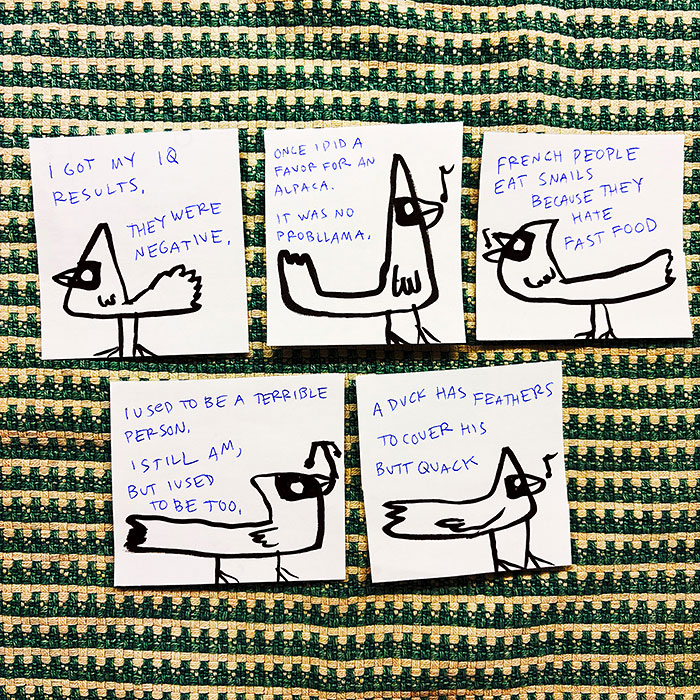 I GOT MY IQ
RESULTS.
THEY WERE
NEGATIVE.
ONCE I DID A
FAVOR FOR AN
ALPACA.
IT WAS NO
PROBLLAMA.
FRENCH PEOPLE
EAT SNAILS
BECAUSE THEY
HATE
FAST FOOD
I USED TO BE A TERRIBLE
PERSON.
I STILL AM,
BUT I USED
TO BE TOO.
A DUCK HAS FEATHERS
TO COVER HIS
BUTT QUACK